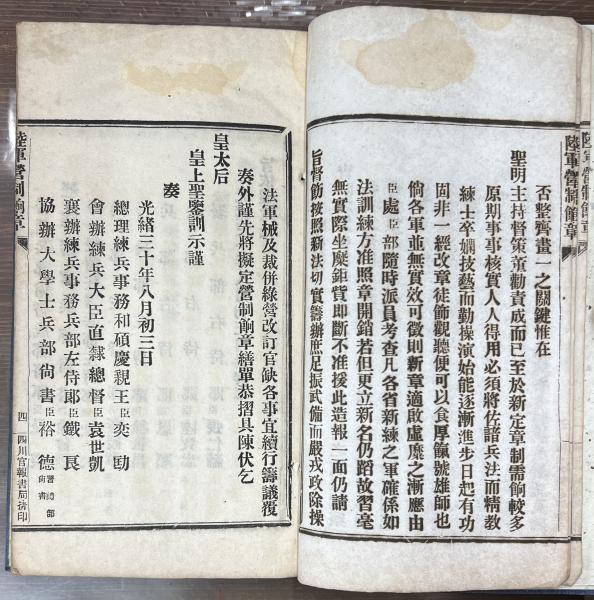 陸軍營制餉章
否整齊畫一之關鍵惟在
聖明主持督策董勸責成而已至於新定章制需餉較多
原期事事核實人人得用必須將佐諳兵法而精教
練士卒嫻技藝而勤操演始能逐漸進步日起有功
固非一經改章徒飾觀聽便可以食厚餉號雄師也
倘各軍並無實效可徵則新章適啟虛糜之漸應由
臣處臣部隨時派員考查凡各省新練之軍確係如
法訓練方准照章開銷若但更立新名仍蹈故習毫
無實際坐糜鉅貲即斷不准援此造報一面仍請
旨督飭按照新法切實籌辦庶足振武備而嚴戎政除操
法軍械及裁併綠營改訂官缺各事宜續行籌議覆
奏外謹先將擬定營制餉章繕單恭摺具陳伏乞
皇太后
皇上聖鑒訓示謹
奏
光緒三十年八月初三日
總理練兵事務和碩慶親王臣奕劻
會辦練兵大臣直隸總督臣袁世凱
襄辦練兵事務兵部左侍郎臣鐵良
協辦大學士兵部尚書臣裕德
陸軍營制餉章
四
四川官報書局排印